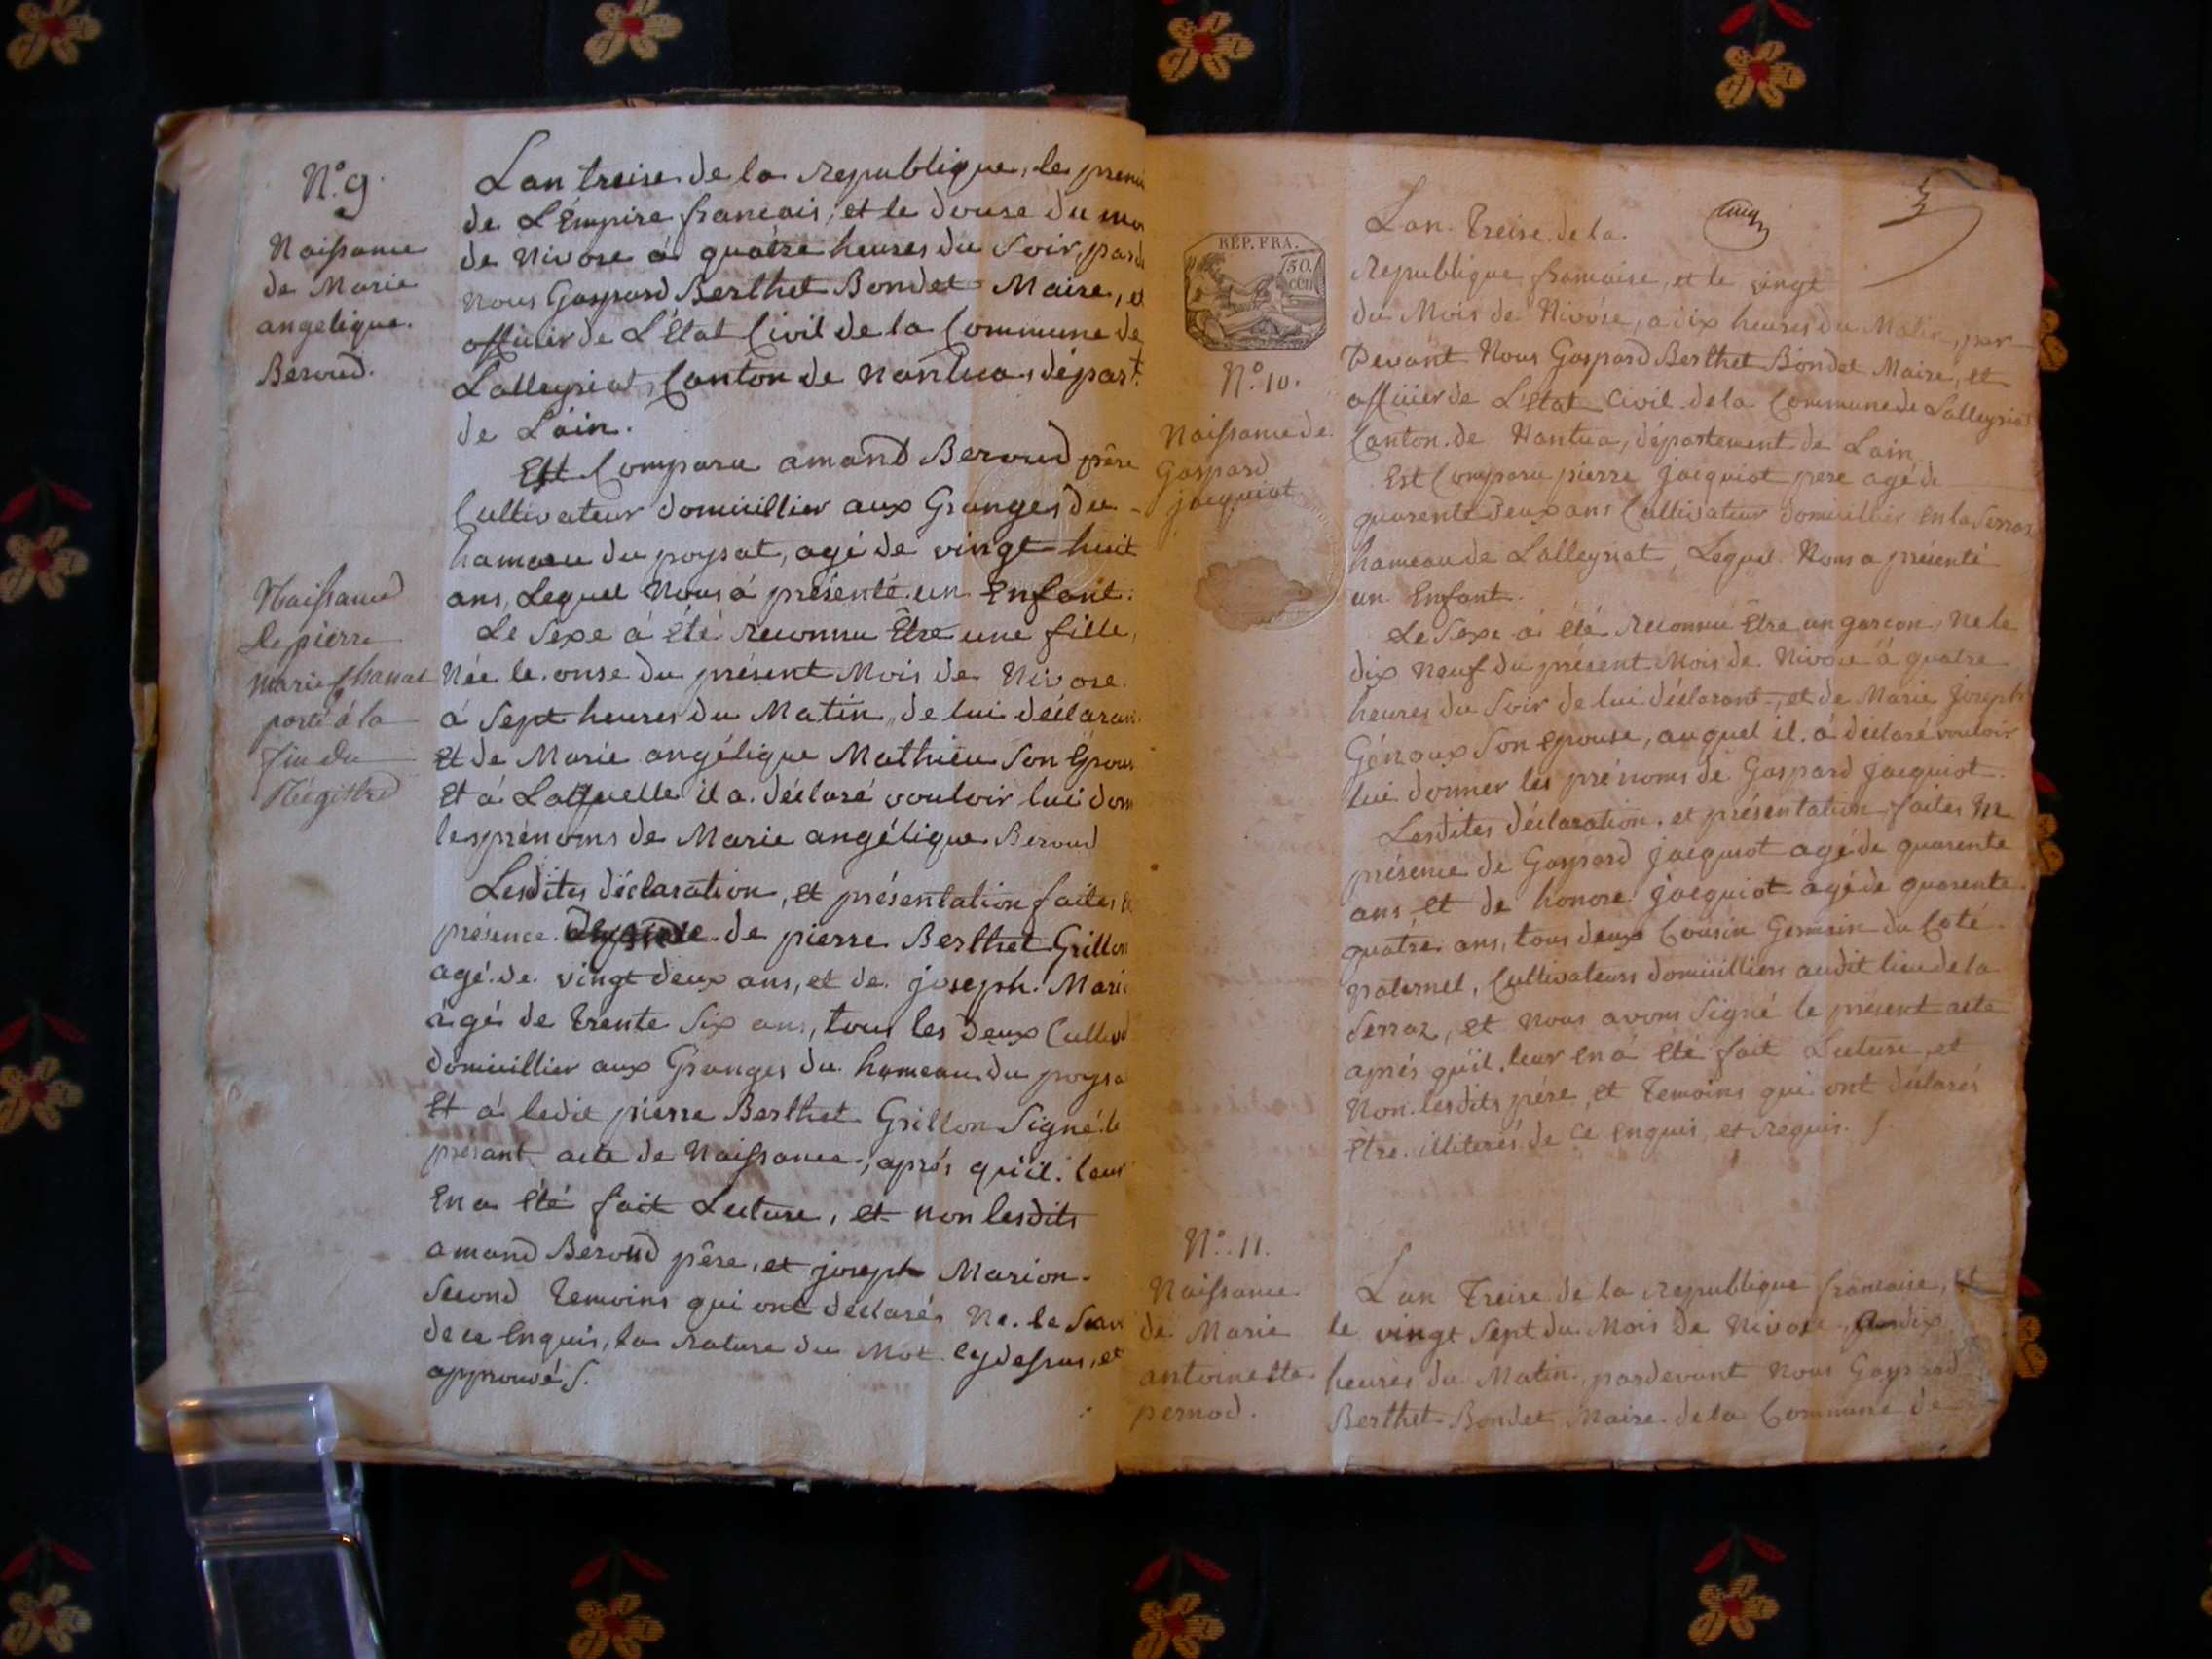 N.° 9.
Naissance
de Marie
angelique.
Beroud.
Naissance
de pierre
marie
porté à la
fin du
Régistre
Lan treise de la republique, le premi
de L'Empire francais, et le douse du mo
de Nivose à quatre heures du Soir, pard
nous Gaspard Berthet Bondet Maire, et
officier de L'Etat Civil de la Commune de
Lalleyriat, Canton de Nantua, départ.t
de Lain.
Est Comparu amand Beroud père
Cultivateur domicillier aux Granges du
hameau du poysat, agé de vingt huit
ans, Lequel Nous à présenté un Enfant.
Le Sexe à été reconnu Etre une fille,
Née le onse du présent Mois de Nivose
à Sept heures du Matin, de lui déclaran
Et de Marie angélique Mathieu Son Epous
Et à Laquelle il a déclaré vouloir lui don
les prénoms de Marie angélique Beroud
Lesdites déclaration, et présentation faites
présence de pierre Berthet Grillon
agé de vingt deux ans, et de joseph Mari
àgé de trente Six ans, tous les deux Cultiv
domicillier aux Granges du hameau du poysa
Et à ledit pierre Berthet Grillon Signé le
présant acte de Naissance, aprés qu'il leur
En a été fait Lecture, et non lesdits
amand Beroud père, et joseph Marion
Second temoins qui ont déclarés Ne le Scav
de ce Enquis, la rature du Mot cy dessus, et
approuvé S.
REP. FRA.
50.
N.° 10.
Naissance de
Gaspard
jacquiot
Lan Treise de la
Republique francaise, et le vingt
du Mois de Nivóse, a dix heures du Matin, par
Devant Nous Gaspard Berthet Bondet Maire, et
officier de L'Etat Civil de la Commune de Lalleyriat
Canton de Nantua, département de Lain
Est Comparu pierre jacquiot pere agé de
quarente deux ans Cultivateur domicillier en la Serraz
hameau de Lalleyriat, Lequel Nous a présenté
un Enfant.
Le Sexe à été reconnu Etre un garcon, Ne le
dix neuf du présent Mois de Nivose à quatre
heures du Soir de lui déclarant, et de Marie joseph
Génoux Son epouse, auquel il à déclaré vouloir
lui donner les prénoms de Gaspard jacquiot.
Lesdites déclaration, et présentation faites En
présence de Gaspard jacquiot agé de quarente
ans Et de honoré jacquiot agé de quarente
quatre ans, tous deux Cousin Germain du Coté
paternel, Cultivateurs domicilliers audit lieu de la
Serraz, et Nous avons Signé le présent acte
aprés qu'il leur en à été fait Lecture, et
Non lesdits père, et Temoins qui ont déclarés
Etre illiterés de ce enquis, et requis. S.
N.° 11.
Naissance
de Marie
antoinette
pernod.
Lan Treise de la republique francaise, Et
le vingt Sept du Mois de Nivose, a dix
heures du Matin, pardevant Nous Gaspard
Berthet Bondet Maire de la Commune de